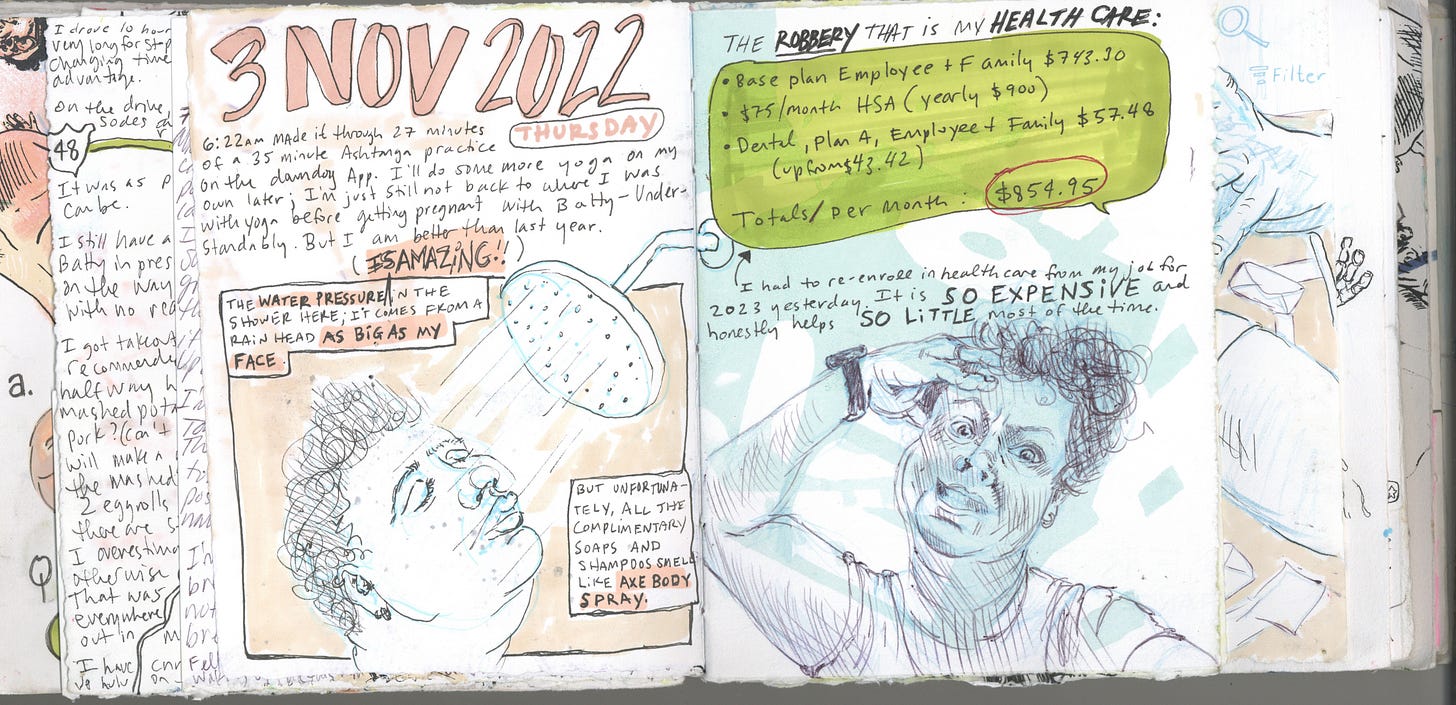 I drove 10 hour
very long for stop
changing time
advantage.
on the drive
sodes
48
It was as p
can be.
I still have a
Batty in pres
on the way
with no rea
I got takeout
recommendy
half way h
mashed pota
pork? (can't
will make a
the mashed
2 eggrolls
there are s
I overestim
otherwise
That was
everywhere
out in
I have
a.
Q
3 NOV 2022
THURSDAY
6:22am Made it through 27 minutes
of a 35 minute Ashtanga practice
on the downdog App. I'll do some more yoga on my
own later; I'm just still not back to where I was
with yoga before getting pregnant with Batty - Under-
standably. But I am better than last year.
(IS AMAZING!!)
THE WATER PRESSURE IN THE
SHOWER HERE; IT COMES FROM A
RAIN HEAD AS BIG AS MY
FACE.
BUT UNFORTUNA-
TELY, ALL THE
COMPLIMENTARY
SOAPS AND
SHAMPOOS SMELL
LIKE AXE BODY
SPRAY.
THE ROBBERY THAT IS MY HEALTH CARE:
• Base plan Employee + Family $743.30
• $75/month HSA (yearly $900)
• Dental, Plan A, Employee + Family $57.48
(up from $43.42)
Totals/ per month: $854.95
I had to re-enroll in healthcare from my job for
2023 yesterday. It is SO EXPENSIVE and
honestly helps SO LITTLE most of the time.
Filter